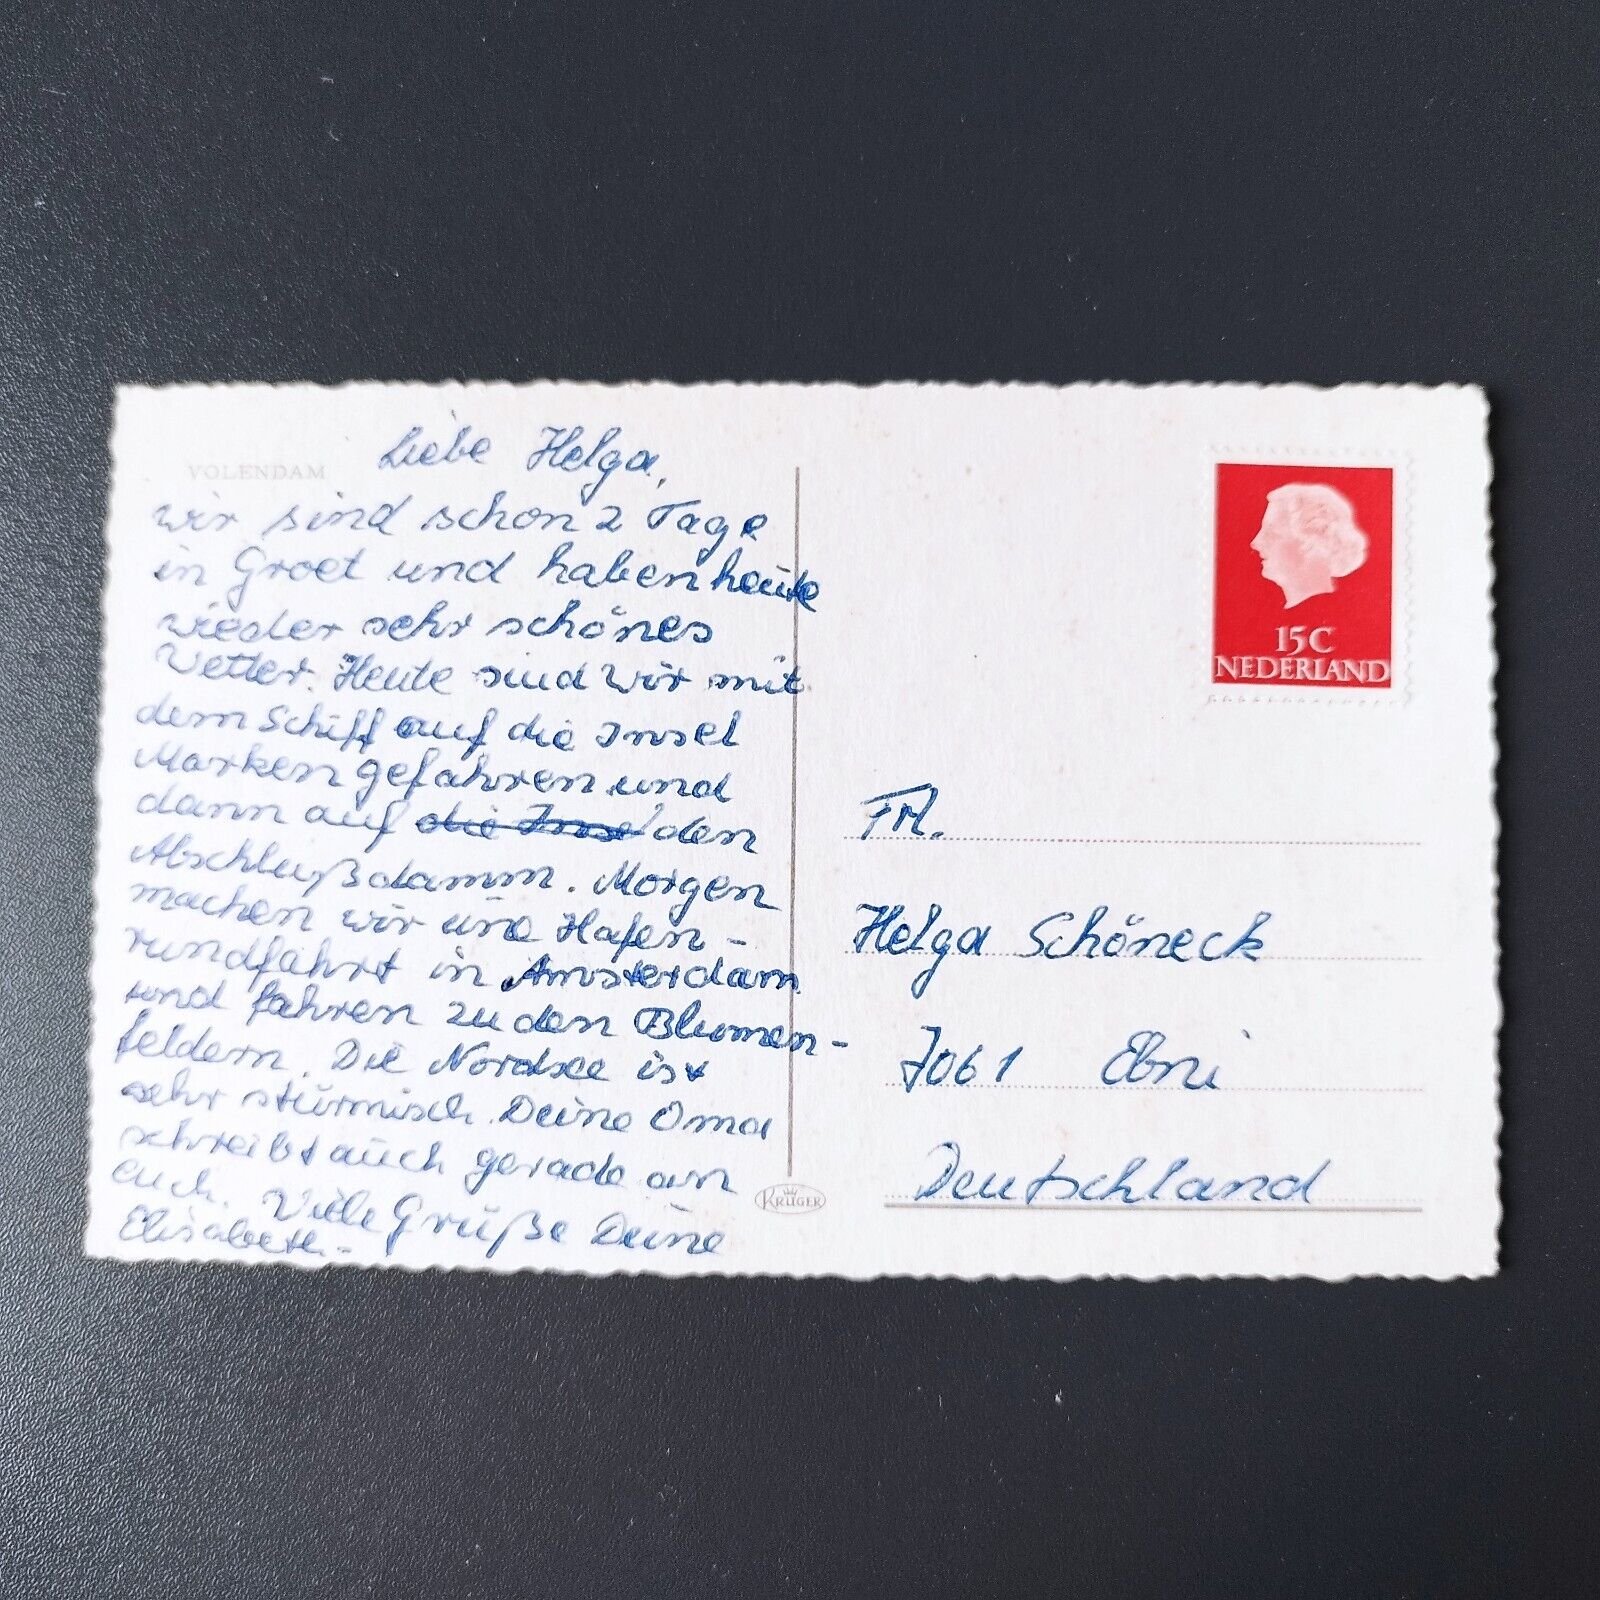 VOLENDAM
Liebe Helga,
wir sind schon 2 Tage
in Groet und haben heute
wieder sehr schönes
Wetter. Heute sind wir mit
dem Schiff auf die Insel
Marken gefahren und
dann auf die Insel den
Abschlußdamm. Morgen
machen wir eine Hafen-
rundfahrt in Amsterdam
und fahren zu den Blumen-
feldern. Die Nordsee ist
sehr stürmisch. Deine Oma
schreibt auch gerade an
euch. Viele Grüße Deine
Elisabeth.-
KRÜGER
15C
NEDERLAND
Frl.
Helga Schöneck
7061 Ebni
Deutschland